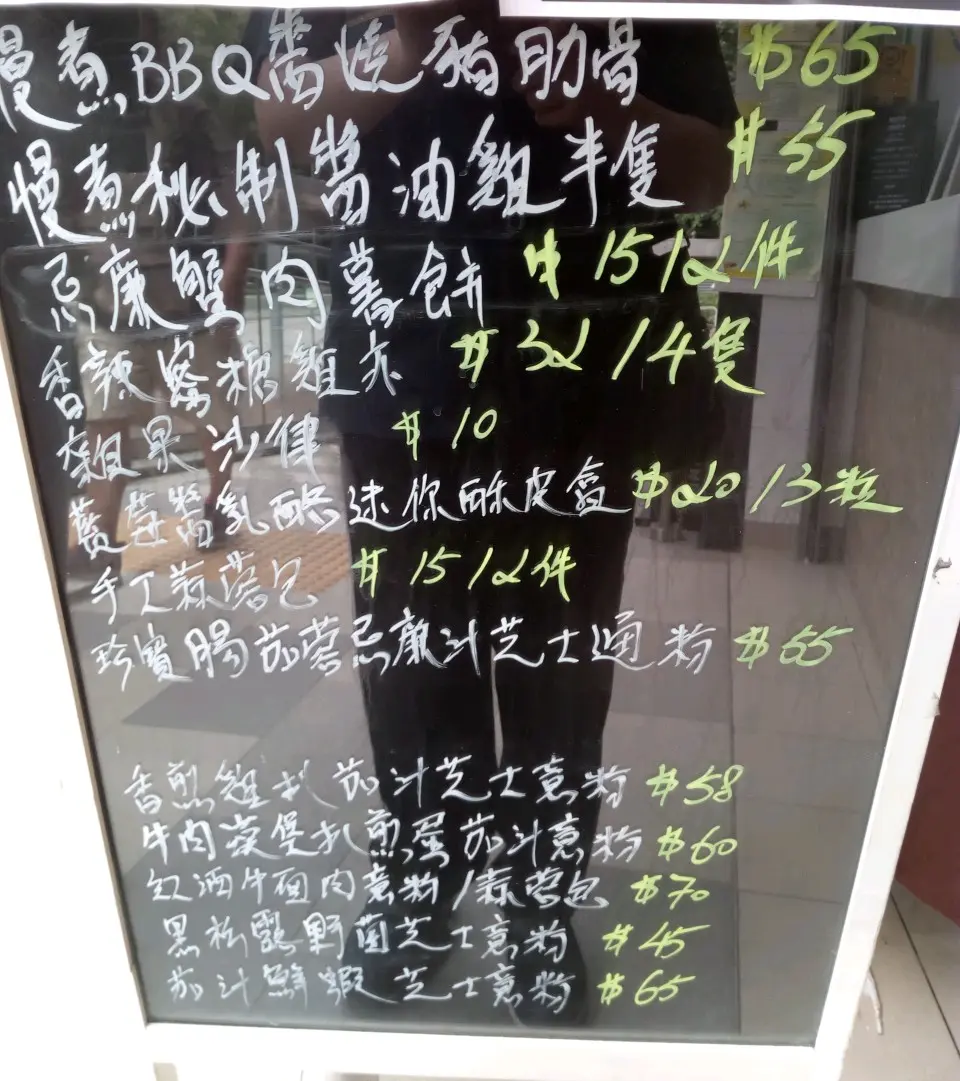 慢煮BBQ醬燒豬肋骨 $65
慢煮秘制醬油雞半隻 $55
忌廉蟹肉薯餅 $15/2件
香辣蜜糖雞亦 $32/4隻
雜果沙律 $10
藍莓醬乳酪迷你酥皮盒 $20/3粒
手工蒜蓉包 $15/2件
珍寶腸茄蓉忌廉汁芝士通粉 $55
香煎雞扒茄汁芝士意粉 $58
牛肉漢堡扒煎蛋茄汁意粉 $60
红酒牛面肉意粉/蒜蓉包 $70
黑松露野菌芝士意粉 $45
茄汁鮮蝦芝士意粉 $65